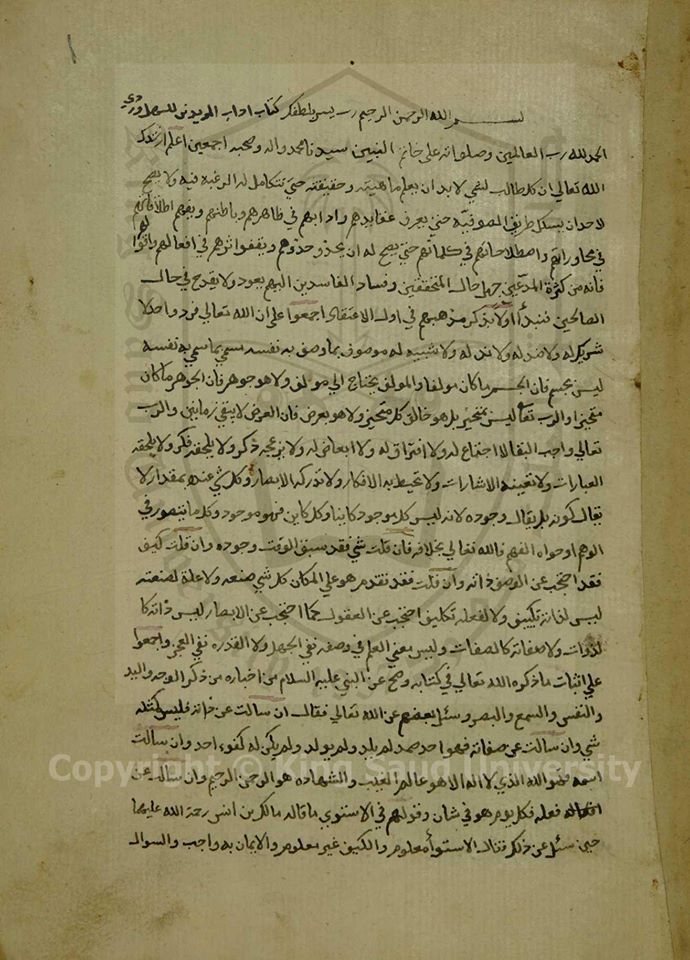 بسم الله الرحمن الرحيم رب يسر بلطفك كتاب اداب المريدين للسهروردي
الحمد لله رب العالمين وصلواته على خاتم النبيين سيدنا محمد واله وصحبه اجمعين اعلم ارشدك
الله تعالي ان كل طالب لشي لا بد ان يعلم ماهيته وحقيقته حتي تتكامل له الرغبه فيه ولا يصح
لاحد ان يسلك طريق الصوفيه حتي يعرف عقايدهم وادابهم في ظاهرهم وباطنهم ويفهم اطلاقاتهم
في محاوراتهم واصطلاحاتهم في كلماتهم حتي يصح له ان يحذو حذوهم ويقفو اثرهم في افعالهم واقوالهم
فانه من كثرة المدعين جهل حال المتحققين وفساد الفاسدين اليهم يعود ولا يقدح في حال
الصالحين فنبدأ اولا بذكر مذهبهم في اول الاعتقاد اجمعوا على ان الله تعالي فرد واحد لا
شريك له ولا ضد له ولا ند له ولا شبيه له موصوف بما وصف به نفسه سمي بما سمي به نفسه
ليس بجسم فان الجسم ما كان مولفا والمولف يحتاج الي مولف ولا هو جوهر فان الجوهر ما كان
متحيزا والرب تعالي ليس بمتحيز بل هو خالق كل متحيز ولا هو بعرض فان العرض لا يبقي زمانين والرب
تعالي واجب البقا لا اجتماع له ولا افتراق له ولا ابعاض له ولا يزعجه ذكر ولا يلحقه فكر ولا تلحقه
العبارات ولا تعينه الاشارات ولا تحيط به الافكار ولا تدركه الابصار وكل شي عنده بمقدار لا
يقال كونه بل يقال وجوده لانه ليس كل موجود كاينا وكل كاين فهو موجود وكل ما يتصور في
الوهم او حواه الفهم فالله تعالي بخلافه فان قلت متي فقد سبق الوقت وجوده وان قلت كيف
فقد احتجب عن الوصف ذاته وان قلت فقد تقدم هو علي المكان كل شي صنعه ولا علة لصنعته
ليس لذاته تكييف ولا لفعله تكليف احتجب عن العقول كما احتجب عن الابصار ليس ذاته كا
لذوات ولا صفاته كالصفات وليس معني العلم في وصفه نفي الجهل ولا القدره نفي العجز واجمعوا
علي اثبات ما ذكره الله تعالي في كتابه وصح عن النبي عليه السلام من اخباره من ذكر الوجه واليد
والنفس والسمع والبصر وسئل بعضهم عن الله تعالي فقال ان سالت عن ذاته فليس كمثله
شي وان سالت عن صفاته فهو احد صمد لم يلد ولم يولد ولم يكن له كفوء احد وان سالت
اسمه فهو الله الذي لا اله الا هو عالم الغيب والشهاده هو الرحمن الرحيم وان سالت عن
فعله فكل يوم هو في شان وقولهم في الاستوي ما قاله مالك بن انس رحمة الله عليهما
حين سئل عن ذلك فقال الاستوأ معلوم والكيف غير معلوم والايمان به واجب والسوال
Copyright © King Saud University